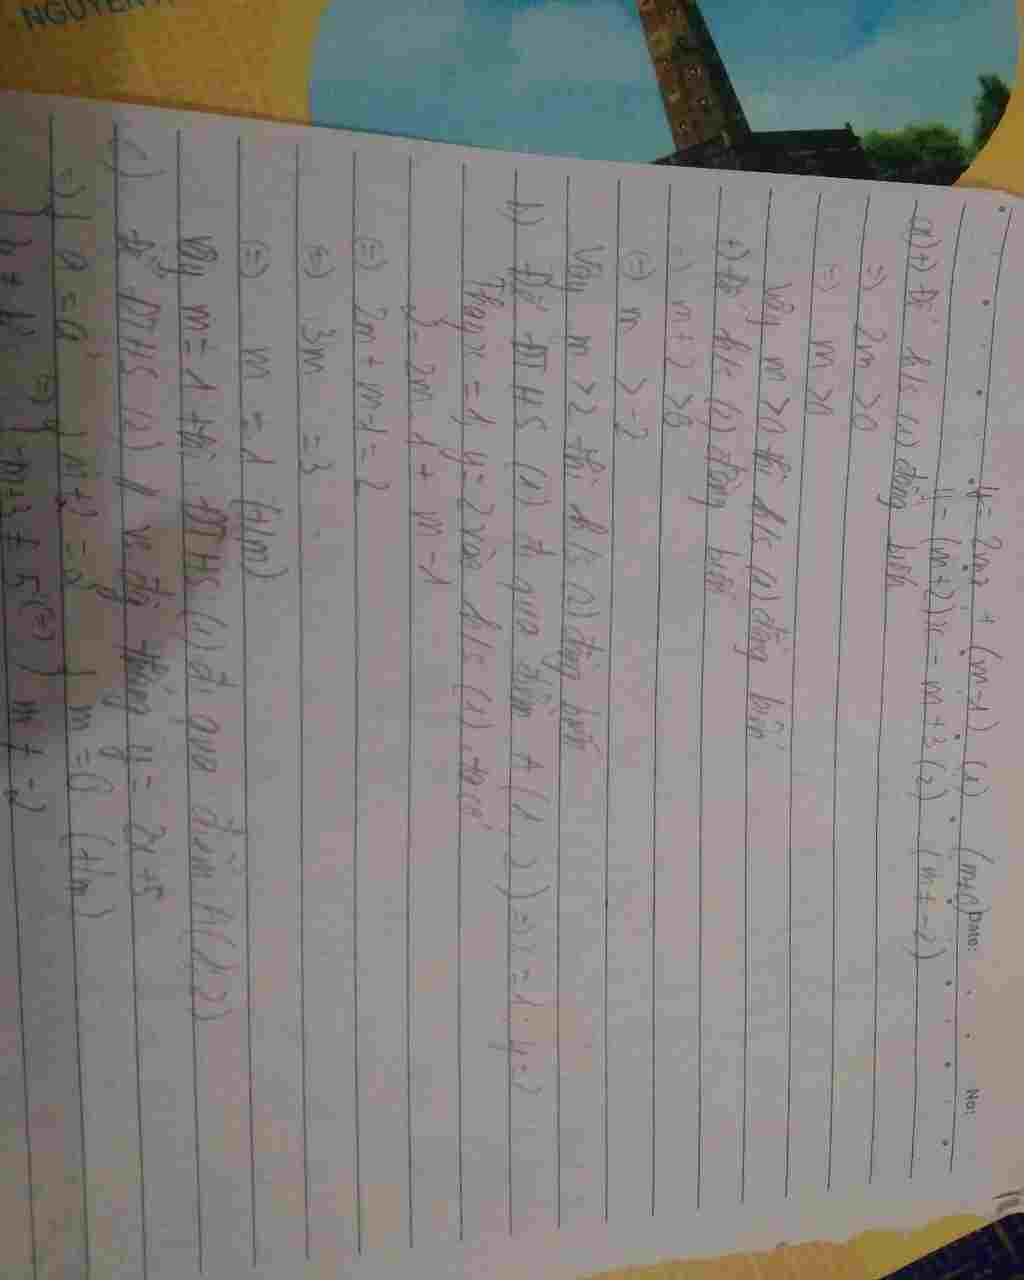 NGUYEN
Date:
No:
y = 2mx + (m-1) (1) (m≠0)
y = (m+2)x - m+3 (2) (m≠-2)
a) +) Để h/s (1) đồng biến
=) 2m >0
=) m >0
Vậy m >0 thì h/s (1) đồng biến
+) Để h/s (2) đồng biến
=) m+2 >0
(=) m >-2
Vậy m >2 thì h/s (2) đồng biến
b) Để ĐTHS (1) đi qua điểm A(1,2) =) x=1, y=2
Thay x=1, y=2 vào h/s (1), ta có
2= 2m.1 + m-1
(=) 2m + m-1 = 2
(=) 3m = 3
(=) m = 1 (t/m)
Vậy m=1 thì ĐTHS (1) đi qua điểm A(1,2)
c) Để ĐTHS (2) // vs đg thẳng y= 2x+5
=) { a = a' (=) { m+2 = 2 { m=0 (t/m)
{ b ≠ b' { -m+3 ≠ 5 (=) { m ≠ -2